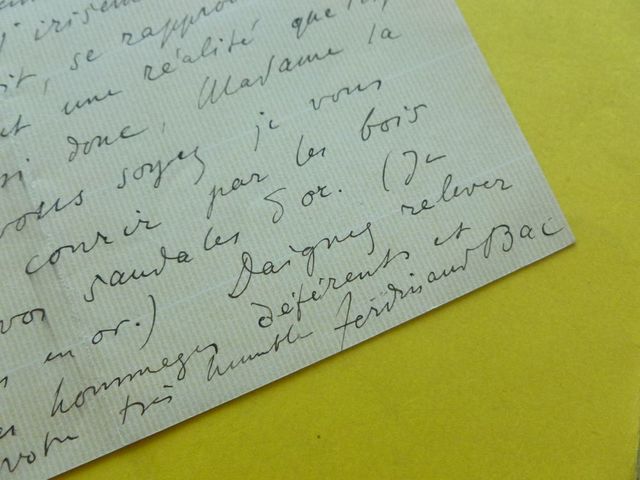 irisem
it, se rappro
t une réalité que
si donc, Madame la
vous soyez je vous
courir par les bois
vos sandales d'or. (Je
en or.) Daignez relever
hommages déférents et
votre très humble Ferdinand Bac